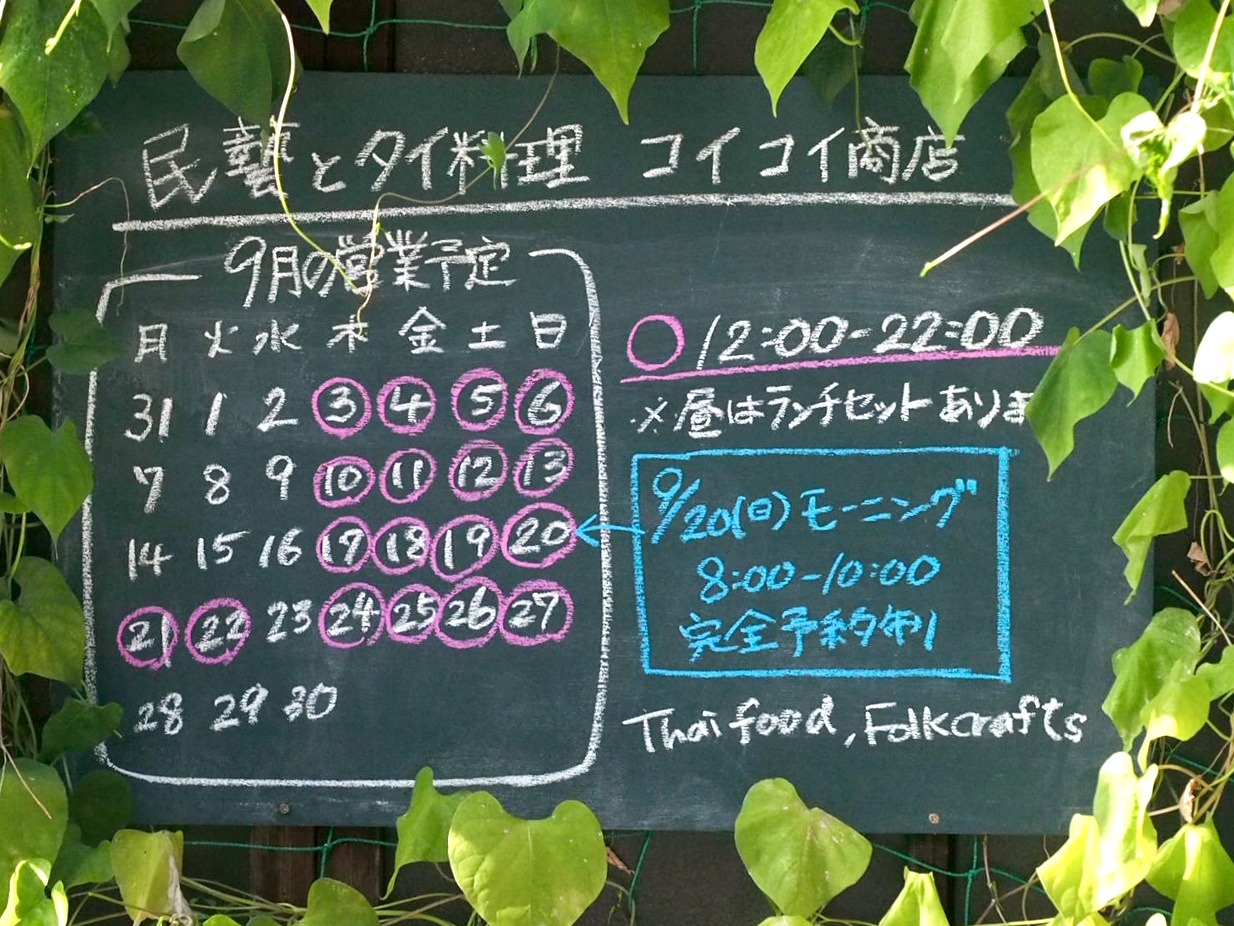 民藝とタイ料理 コイコイ商店
9月の営業予定
月 火 水 木 金 土 日
31 1 2 3 4 5 6
7 8 9 10 11 12 13
14 15 16 17 18 19 20
21 22 23 24 25 26 27
28 29 30
○ 12:00-22:00
※昼はランチセットありま
9/20(日)モーニング
8:00-10:00
完全予約制
Thai food, Folkcrafts